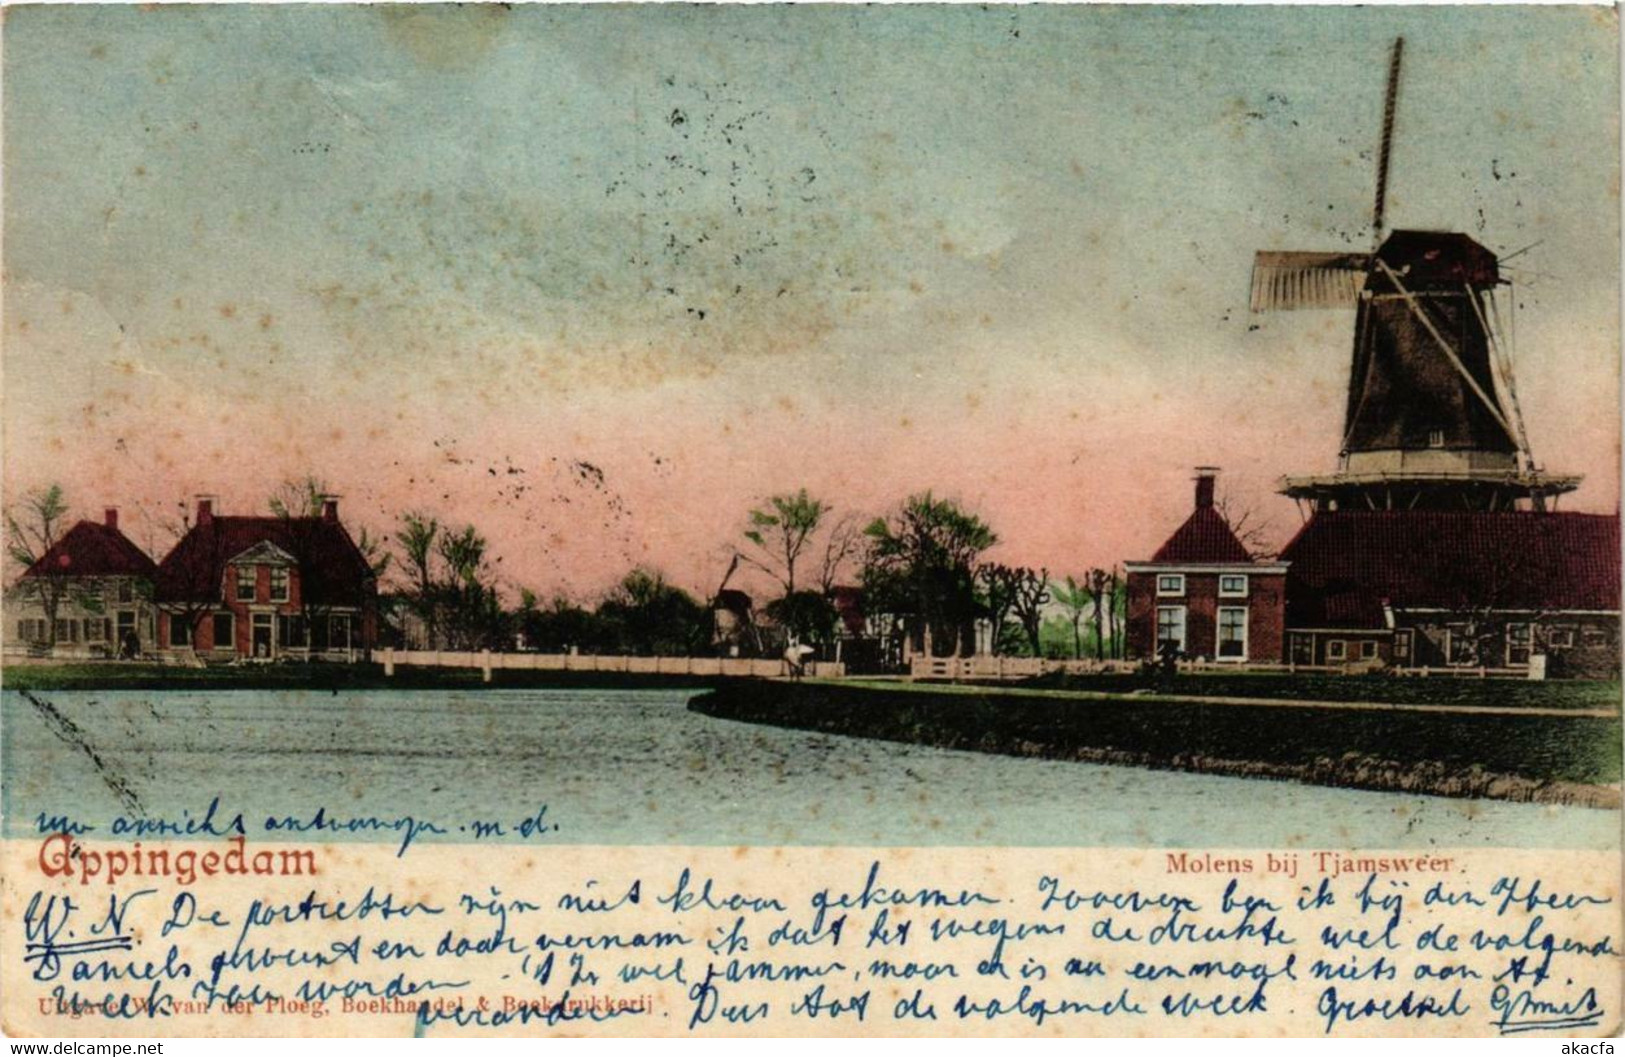 uw ansicht ontvangen. m.d.
Appingedam
Molens bij Tjamsweer.
W. N. De portretten zijn niet klaar gekomen. Zooeven ben ik bij den Heer
Daniels geweest en daar vernam ik dat het wegens de drukte wel de volgende
week zou worden. 't Is wel jammer, maar er is nu eenmaal niets aan te
veranderen. Dus tot de volgende week. Groetend
Uitgave W. van der Ploeg, Boekhandel & Boekdrukkerij
akacfa
delcampe.net